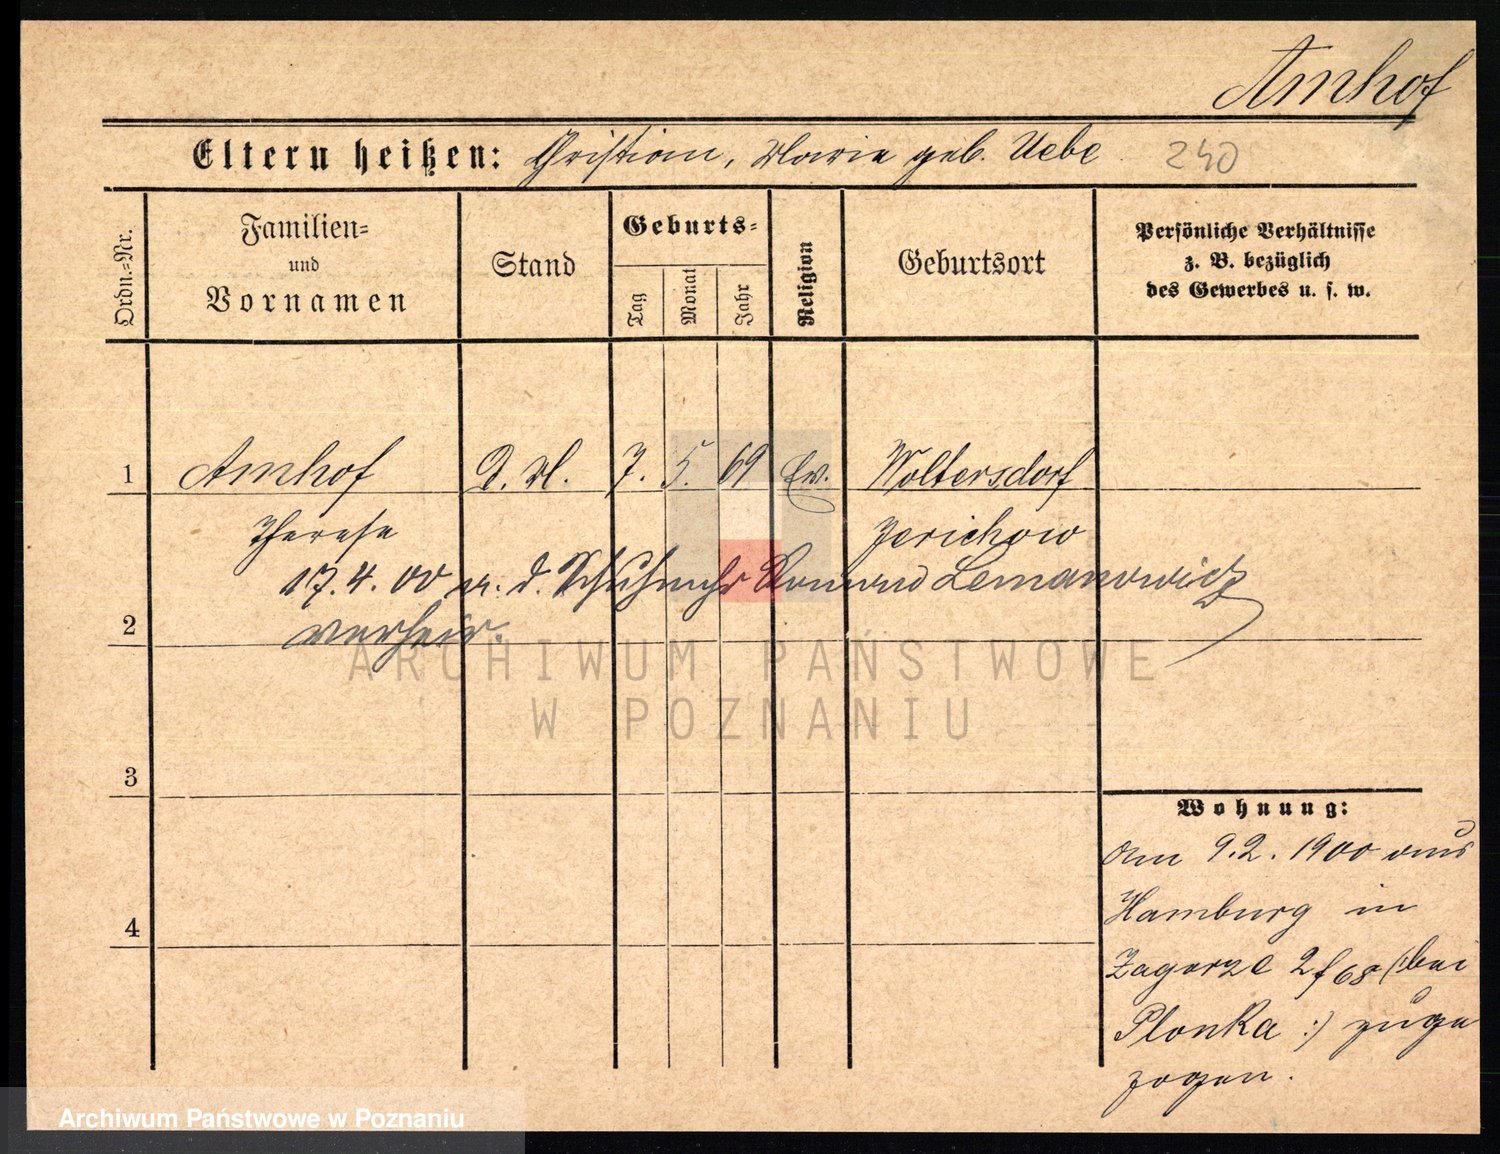 Amhof
Eltern heißen: Christian, Marie geb. Uebe 240
Ordn.=Nr.
Familien=
und
Vornamen
Stand
Geburts=
Tag
Monat
Jahr
Religion
Geburtsort
Persönliche Verhältnisse
z. B. bezüglich
des Gewerbes u. s. w.
1 Amhof D. M. 7. 5. 69 Ev. Woltersdorf
Therese Jerichow
17.4.00 m. d. Schuhmchr Konrad Lemanowicz
2 verheir.
3
4
Wohnung:
Am 9.2.1900 aus
Hamburg in
Zagorze 2 f 68 (:bei
Plonka :) zuge
zogen.
ARCHIWUM PAŃSTWOWE
W POZNANIU
Archiwum Państwowe w Poznaniu